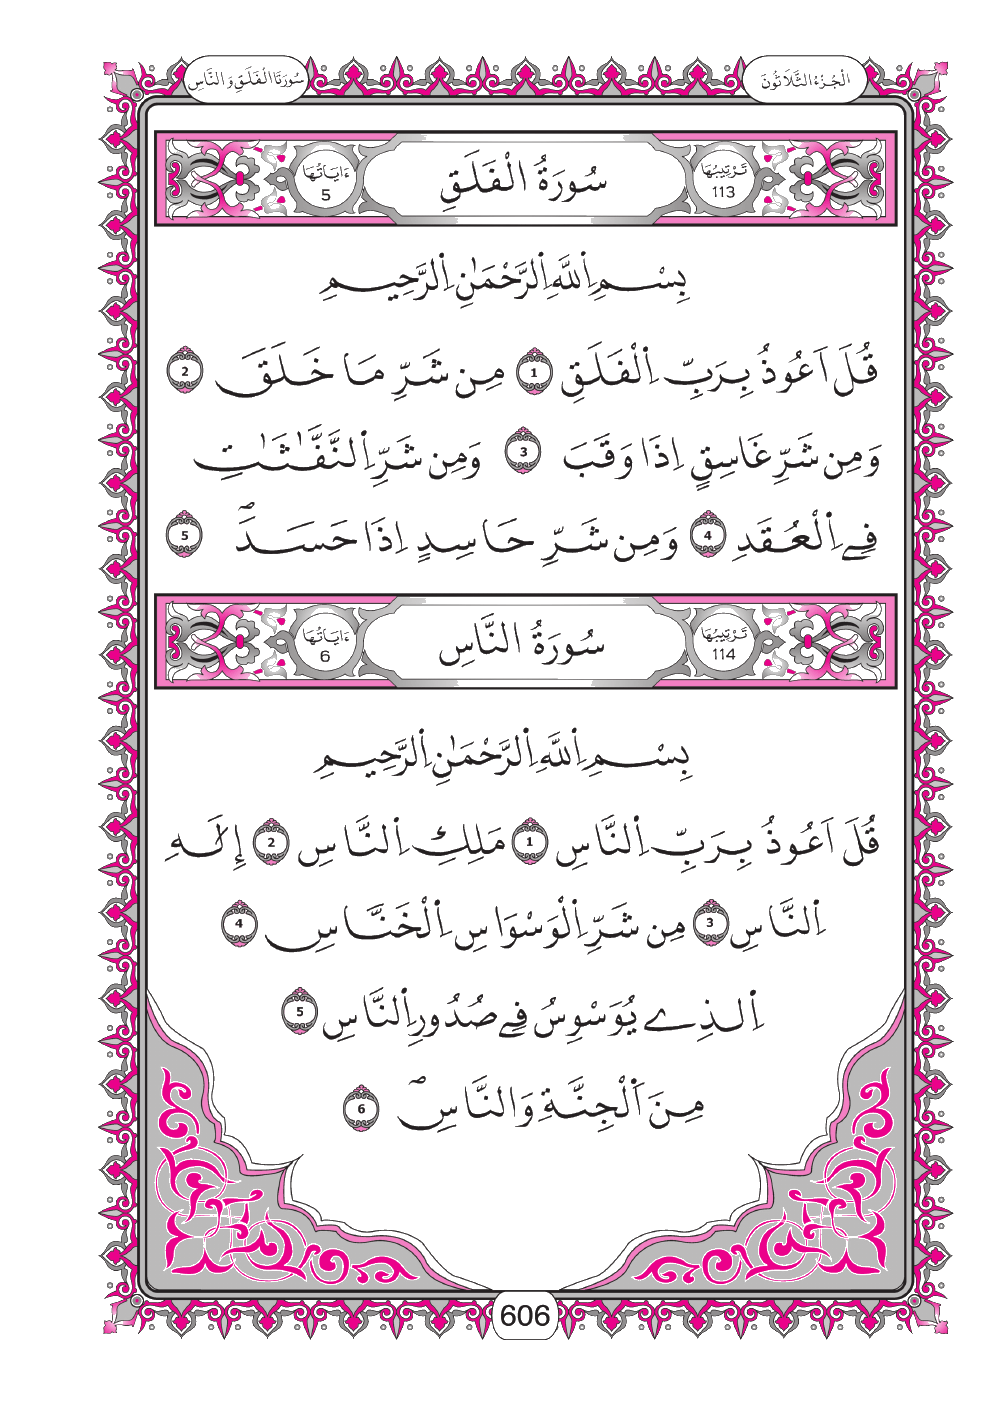 الْجُزْءُ الثَّلَاثُونَ
سُورَتَا الْفَلَقِ وَالنَّاسِ
تَرْتِيبُهَا 113
سُورَةُ الْفَلَقِ
ءَايَاتُهَا 5
بِسْمِ اِ۬للَّهِ اِ۬لرَّحْمَٰنِ اِ۬لرَّحِيمِ
قُلَ اَعُوذُ بِرَبِّ اِ۬لْفَلَقِ 1 مِن شَرِّ مَا خَلَقَ 2
وَمِن شَرِّ غَاسِقٍ اِذَا وَقَبَ 3 وَمِن شَرِّ اِ۬لنَّفَّٰثَٰتِ
فِے اِ۬لْعُقَدِ 4 وَمِن شَرِّ حَاسِدٍ اِذَا حَسَدَۖ 5
تَرْتِيبُهَا 114
سُورَةُ النَّاسِ
ءَايَاتُهَا 6
بِسْمِ اِ۬للَّهِ اِ۬لرَّحْمَٰنِ اِ۬لرَّحِيمِ
قُلَ اَعُوذُ بِرَبِّ اِ۬لنَّاسِ 1 مَلِكِ اِ۬لنَّاسِ 2 إِلَٰهِ
اِ۬لنَّاسِ 3 مِن شَرِّ اِ۬لْوَسْوَاسِ اِ۬لْخَنَّاسِ 4
اِ۬لذِے يُوَسْوِسُ فِے صُدُورِ اِ۬لنَّاسِ 5
مِنَ اَ۬لْجِنَّةِ وَالنَّاسِۖ 6
606